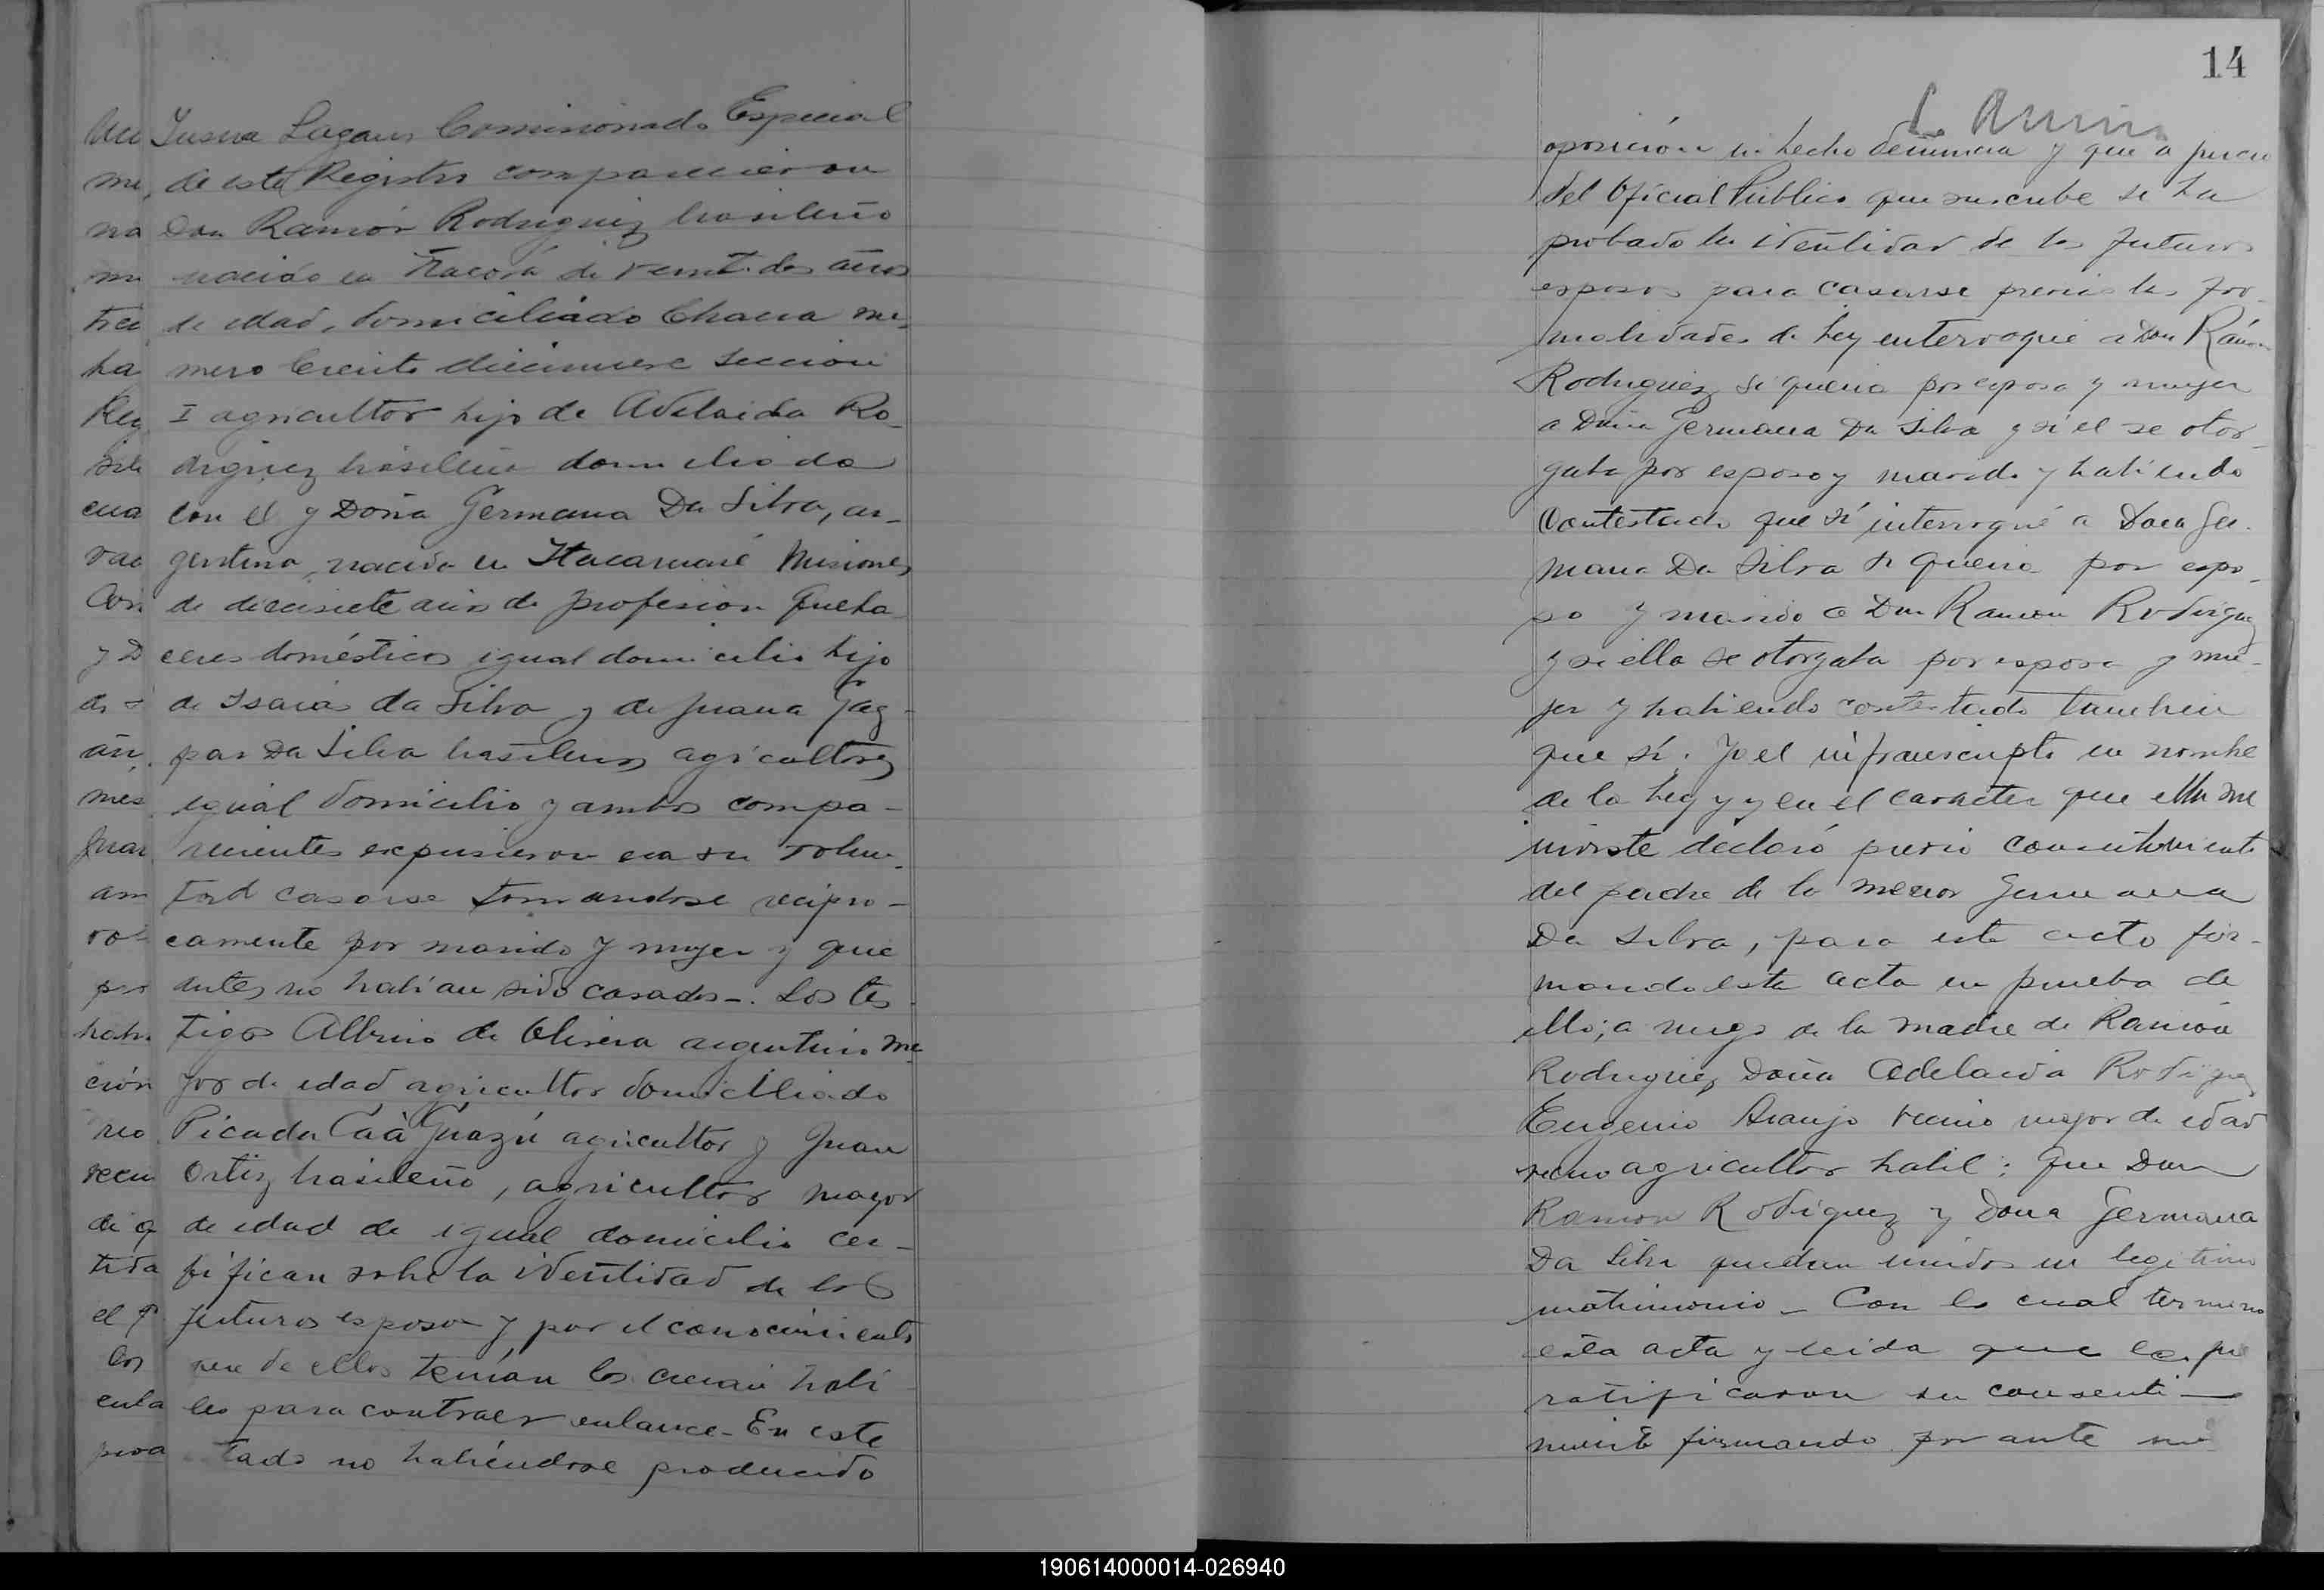 Lazaus Comisionado Especial
de este Registro comparecieron
Don Ramón Rodriguez brasileño
nacido en de veintidos años
de edad, domiciliado Chacra nu-
mero Ciento diecinueve Sección
I agricultor hijo de Adelaida Ro-
driguez brasileña domiciliada
con el y Doña Germana Da Silva, ar-
gentina, nacida en Itacaruaré Misiones
de diecisiete años de profesion queha
ceres domésticos igual domicilio hija
de Isaias da Silva y de Juana Gas-
par Da Silva brasileños agricultores
igual domicilio y ambos compa-
recientes expusieron era su volun-
tad casarse tomandose recipro-
camente por marido y mujer y que
antes no habian sido casados-. Los tes
tigos Albino de Olivera argentino ma
yor de edad agricultor domiciliado
Picada Caà Guazú agricultor y Juan
Ortiz brasileño, agricultor mayor
de edad de igual domicilio cer-
tifican sobre la identidad de los
futuros esposos y por el conocimiento
que de ellos tenían los creian habi
les para contraer enlance- En este
tado no habiéndose producido
14
oposición ni hecho denuncia y que a juicio
del Oficial Público que suscribe se ha
probado la identidad de los futuros
esposos para casarse previas las for-
malidades de Ley enterroque a Don Ramón
Rodriguez si queria por esposa y mujer
a Doña Germana Da Silva y si el se otor-
gaba por esposo y marido y habiendo
Contestado que sí interrogué a Doña Ger-
mana Da Silva si queria por espo-
so y marido a Don Ramon Rodriguez
y si ella se otorgaba por esposa y mu-
jer y habiendo contestado tambien
que sí. Yo el infraescripto en nombre
de la Ley y y en el caracter que ella me
inviste declaró previo consentimiento
del padre de la menor Germana
Da Silva, para este acto fir-
mando esta acta en prueba de
ello; a ruego de la madre de Ramón
Rodriguez Doña Adelaida Rodriguez
Eugenio Araujo vecino mayor de edad
vecino agricultor habil; que Don
Ramon Rodriguez y Dona Germana
Da Silva quedan unidos en legitimo
matrimonio- Con lo cual termino
esta acta y leida que les fue
ratificaron su consenti-
miento firmando por ante mi
190614000014-026940